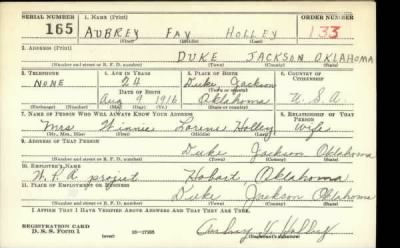 SERIAL NUMBER 1. NAME (Print) ORDER NUMBER
165 AUBREY FAY HOLLEY 133
(First) (Middle) (Last)
2. ADDRESS (Print)
DUKE JACKSON OKLAHOMA
(Number and street or R. F. D. number) (Town) (County) (State)
3. TELEPHONE 4. AGE IN YEARS 5. PLACE OF BIRTH 6. COUNTRY OF CITIZENSHIP
NONE 24 Duke, Jackson
DATE OF BIRTH (Town or county)
Aug 9 1916 Oklahoma U.S.A.
(Exchange) (Number) (Mo.) (Day) (Yr.) (State or country)
7. NAME OF PERSON WHO WILL ALWAYS KNOW YOUR ADDRESS 8. RELATIONSHIP OF THAT PERSON
Mrs Winnie Lorene Holley wife
(Mr., Mrs., Miss) (First) (Middle) (Last)
9. ADDRESS OF THAT PERSON
Duke Jackson Oklahoma
(Number and street or R. F. D. number) (Town) (County) (State)
10. EMPLOYER'S NAME
W.P.A. project Hobart Oklahoma
11. PLACE OF EMPLOYMENT OR BUSINESS
Duke Jackson Oklahoma
(Number and street or R. F. D. number) (Town) (County) (State)
I AFFIRM THAT I HAVE VERIFIED ABOVE ANSWERS AND THAT THEY ARE TRUE.
REGISTRATION CARD
D. S. S. FORM 1 (over) 16-17105 Aubrey F. Holley
(Registrant's signature)